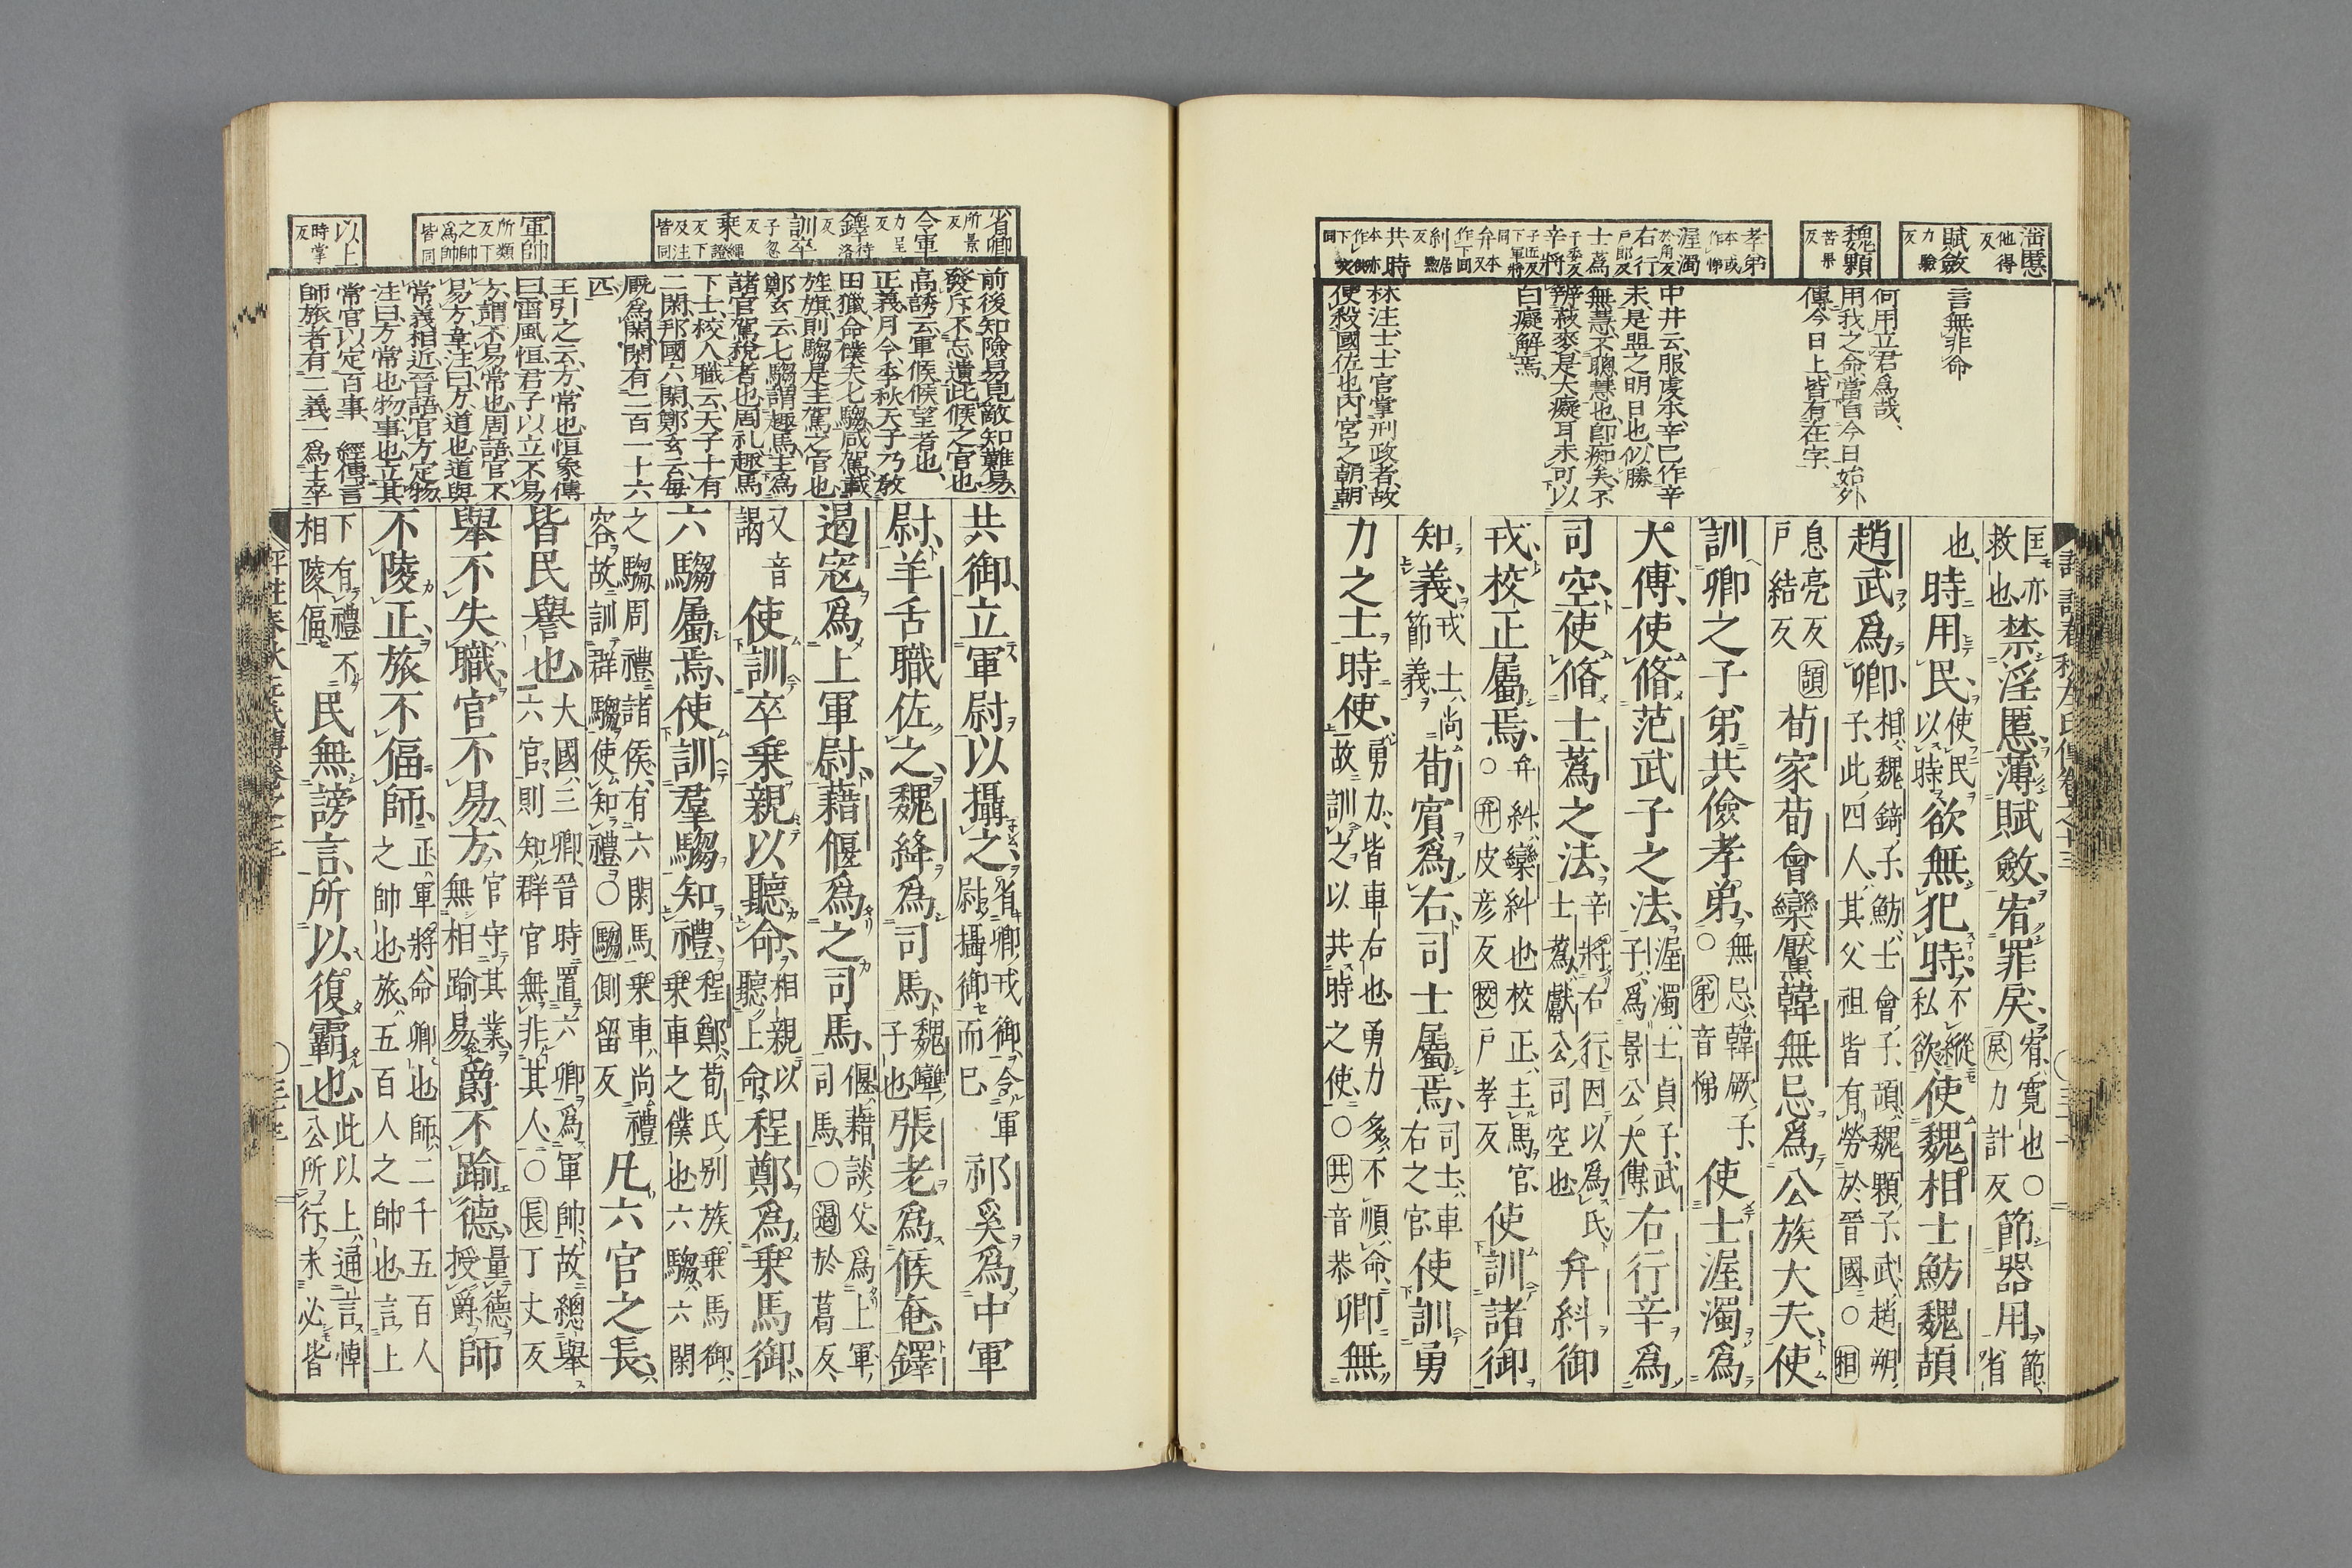 慝 他得反
賦斂 力驗反
魏顆 苦果反
孝弟 本或作悌
渥濁 於角反
右行 戶郎反
士蒍 于委反
辛將 子匠反下軍將同
弁 本又作卞同
糾 居黝反
共時
言無罪命
何用立君爲哉、
用我之命、當自今日始、外
傳今日上、皆有在字、
中井云、服虔本、辛巳作辛
未、是盟之明日也、似勝
無慧、不聰慧也、卽痴矣、不
辨菽麥、是大癡耳、未可以
白癡解焉、
林注、士、士官、掌刑政者、故
使殺國佐也、內宮之朝、朝
匡亦救也、禁淫慝、薄賦斂、宥罪戾、宥、寬也○戾力計反節器用、節、省
也、時用民、使民以時欲無犯時、不縱私欲、使魏相士魴魏頡
趙武爲卿、相、魏錡子、魴、士會子、頡、魏顆子、武、趙朔子、此四人、其父祖皆有勞於晉國、○相
息亮反頡戶結反荀家荀會欒黶韓無忌爲公族大夫、使
訓卿之子弟共儉孝弟、無忌、韓厥子、○弟音悌使士渥濁爲
大傅、使脩范武子之法、渥濁、士貞子、武子、爲景公大傅右行辛爲
司空、使脩士蒍之法、辛將右行、因以爲氏、士蒍、獻公司空也弁糾御
戎、校正屬焉、弁糾、欒糾也、校正、主馬官、○弁皮彥反校戶孝反使訓諸御
知義、戎士、尚節義、荀賓爲右、司士屬焉、司士、車右之官使訓勇
力之士時使、勇力、皆車右也、勇力多不順命、故訓之以共時之使、○共音恭卿無
省卿 所景反
令軍 力呈反
鐸 待洛反
訓卒 子忽反
乗 繩證反下及注皆同
軍帥 所類反下之帥爲帥皆同
以上 時掌反
前後知險易、見敵知難易、
發斥不忘遺、此候之官也
高誘云、軍候、候望者也、
正義、月令、季秋天子乃敎
田獵、命僕夫七騶咸駕、載
旌旗、則騶是主駕之官也、
鄭玄云、七騶謂趣馬、主爲
諸官駕稅者也、周禮、趣馬
下士、校人職云、天子十有
二閑、邦國六閑、鄭玄云、每
廐爲閑、閑有二百一十六
匹、
王引之云、方、常也、恒象傳
曰、雷風恒、君子以立不易
方、謂不易常也、周語、官不
易方、韋注曰、方、道也、道與
常義相近、晉語、官方定物、
注曰、方、常也、物、事也、立其
常官、以定百事、經傳言
師旅者有二義、一爲士卒
共御、立軍尉以攝之、省卿戎御、令軍尉攝御而已祁奚爲中軍
尉、羊舌職佐之、魏絳爲司馬、魏犨子也張老爲候奄、鐸
遏寇爲上軍尉、藉偃爲之司馬、偃、藉談父、爲上軍司馬、○遏於葛反、
又音謁使訓卒乗親以聽命、相親以聽上命、程鄭爲乗馬御、
六騶屬焉、使訓羣騶知禮、程鄭、荀氏別族、乗馬御、乗車之僕也、六騶、六閑
之騶、周禮、諸侯有六閑馬、乗車尚禮容、故訓群騶使知禮、○騶側留反凡六官之長、
皆民譽也、大國三卿、晉時置六卿爲軍帥、故總舉六官、則知群官無非其人、○長丁丈反
舉不失職、官不易方、官守其業、無相踰易爵不踰德、量德授爵師
不陵正、旅不偪師、正、軍將、命卿也、師、二千五百人之帥也、旅、五百人之帥也、言上
下有禮、不相陵偪民無謗言、所以復霸也、此以上、通言悼公所行、未必皆